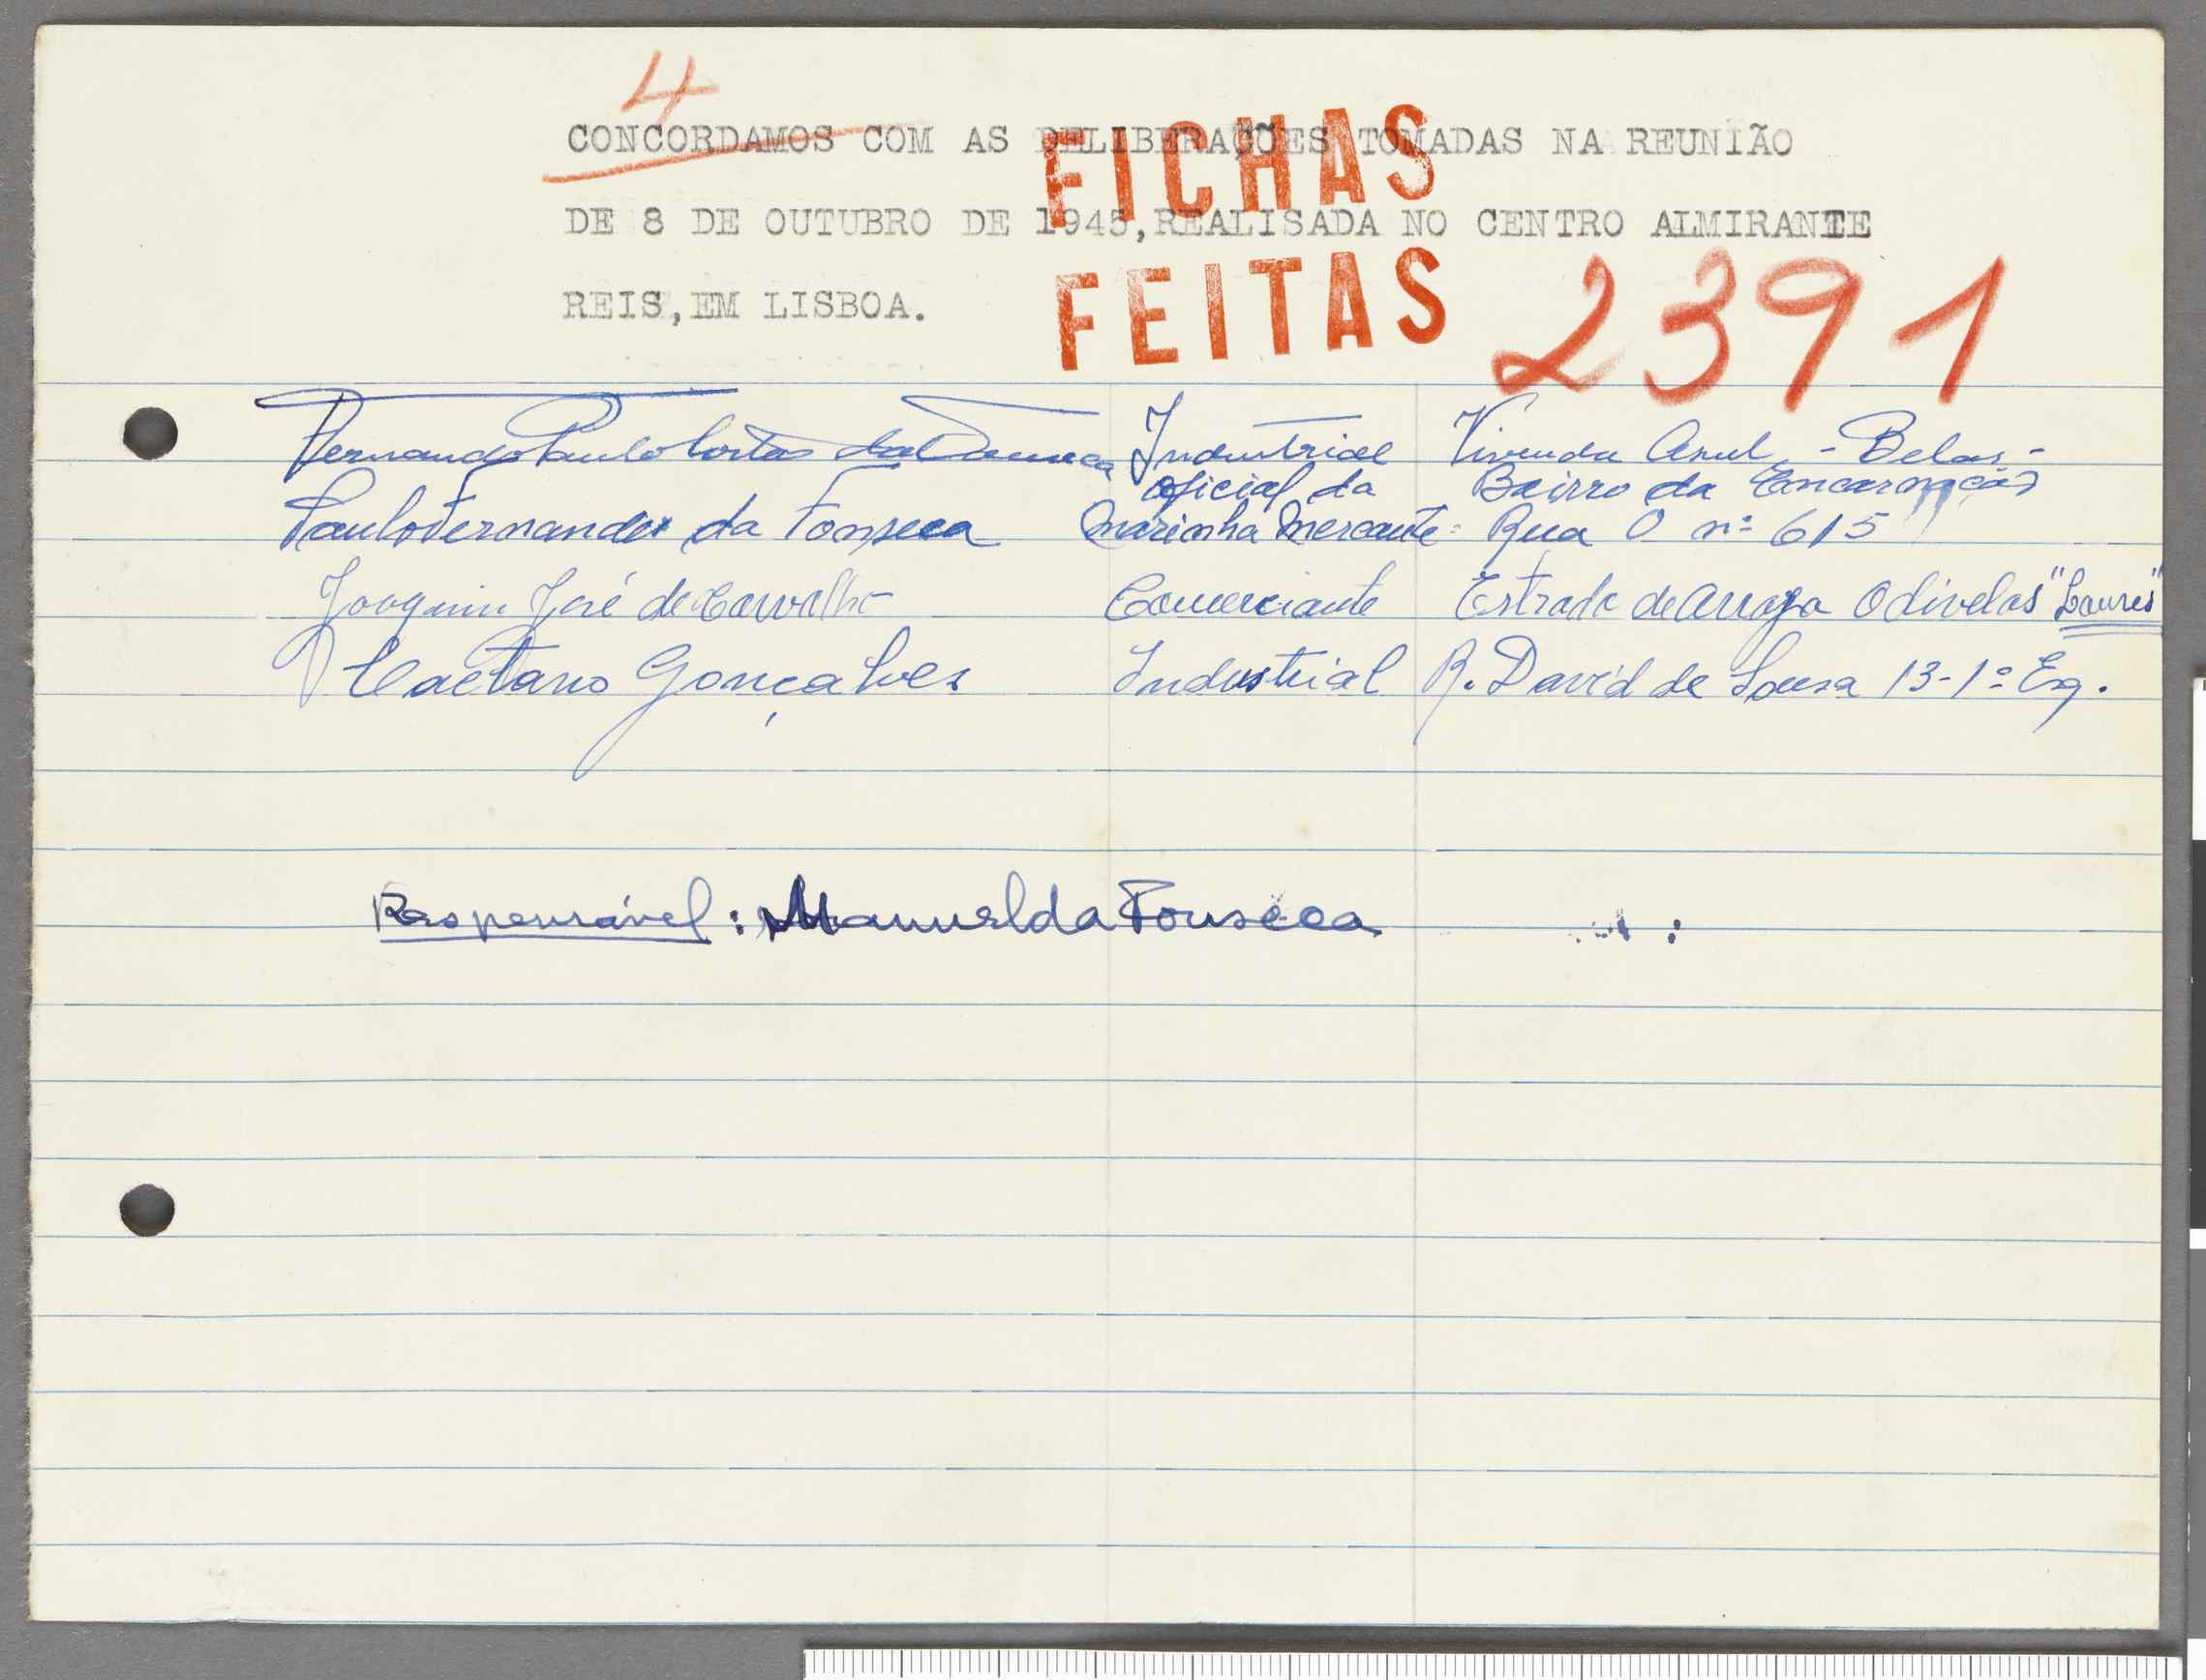 4
CONCORDAMOS COM AS DELIBERAÇÕES TOMADAS NA REUNIÃO
FICHAS
DE 8 DE OUTUBRO DE 1945, REALISADA NO CENTRO ALMIRANTE
REIS, EM LISBOA.
FEITAS
2391
Fernando Paulo Cortas da Fonseca Industrial Vivenda Azul - Belas -
Paulo Fernandes da Fonseca oficial da Marinha Mercante Bairro da Encarnação
Rua O nº 615
Joaquim José de Carvalho Comerciante Estrada de Arroja Odivelas "Loures"
Caetano Gonçalves Industrial R. David de Sousa 13-1º Esq.
Responsável: Manuel da Fonseca